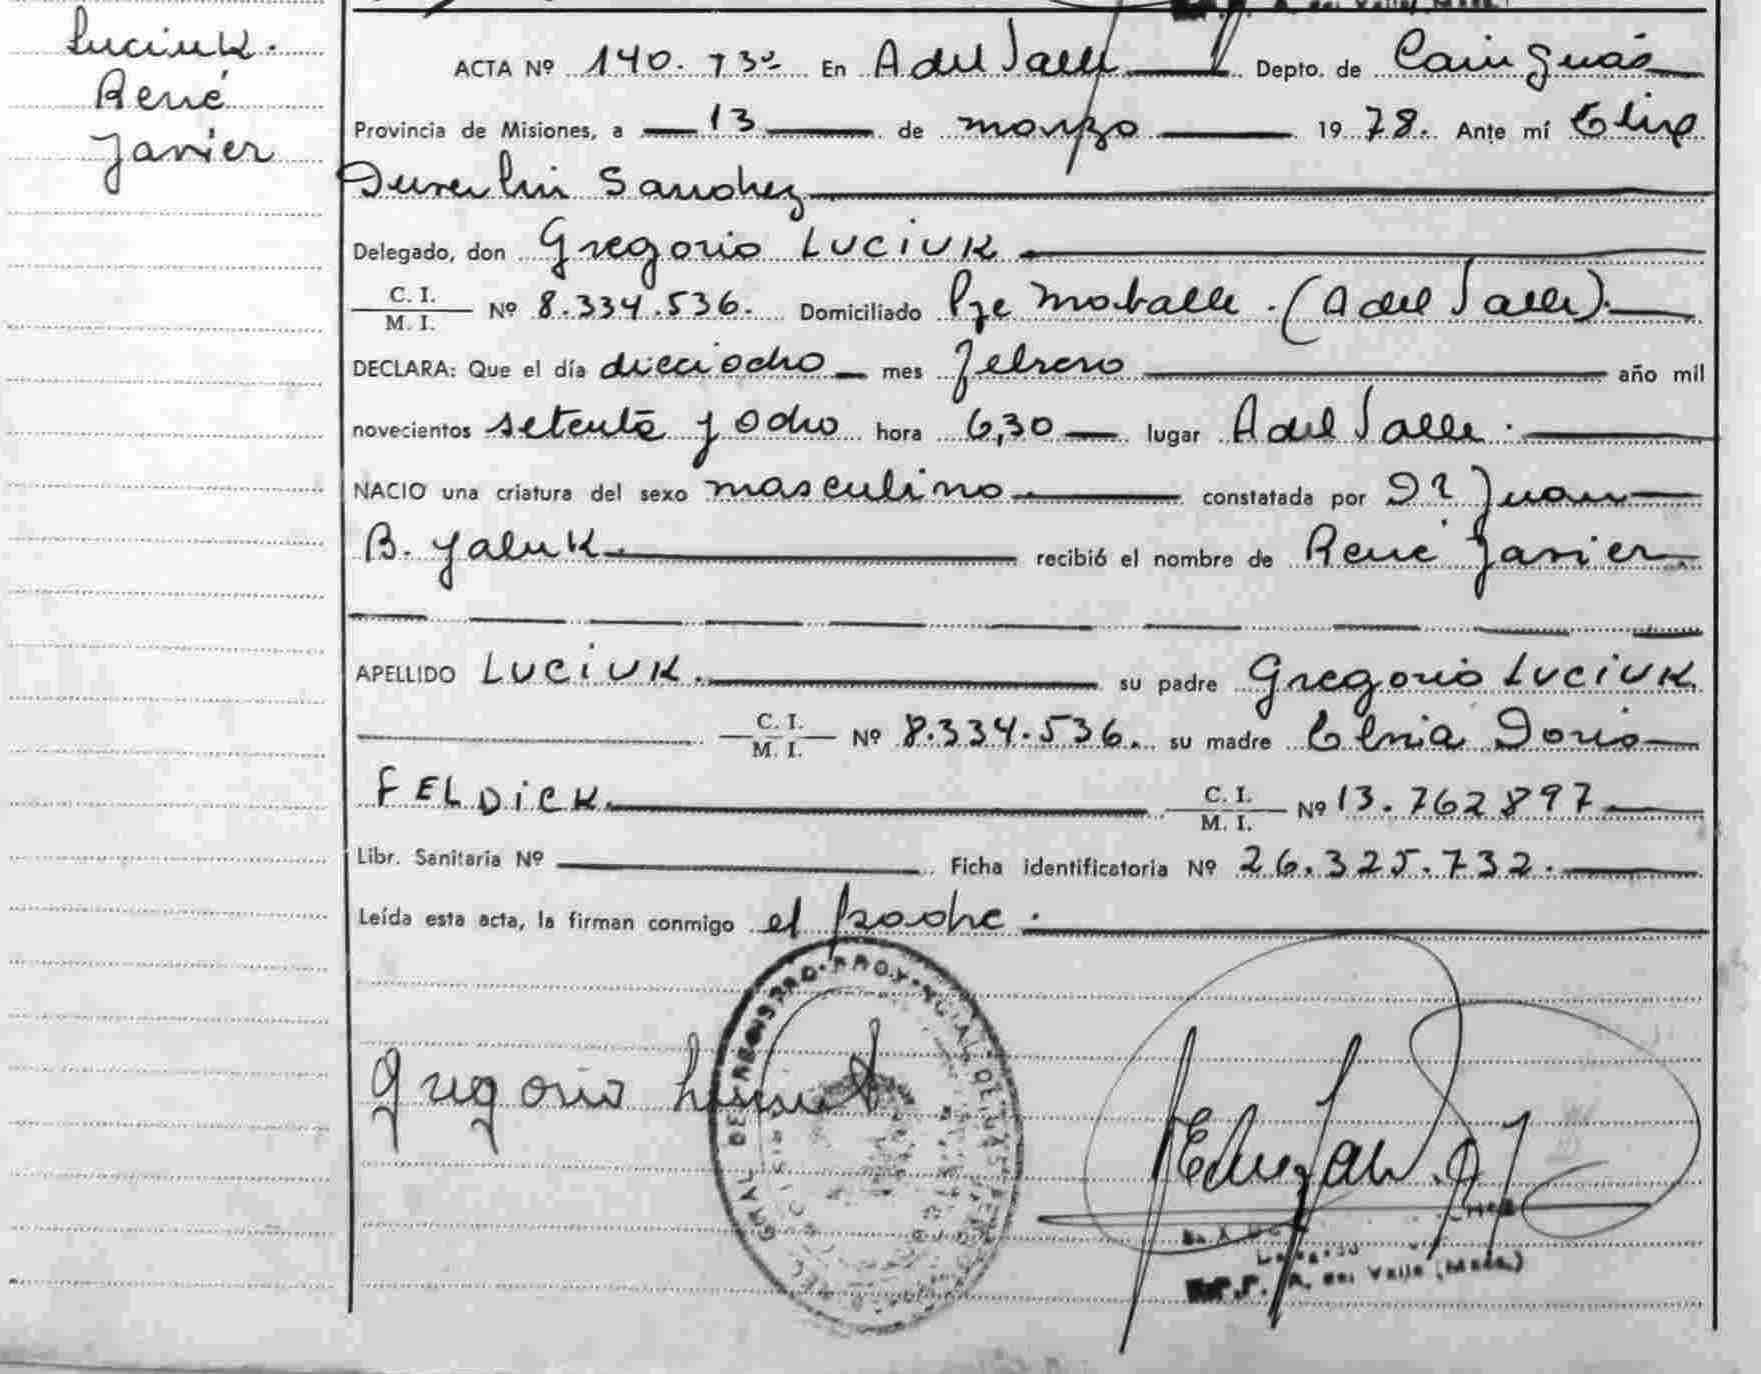 Luciuk.
René
Javier
ACTA Nº 140. Tº 3º En A del Valle Depto. de Cainguás
Provincia de Misiones, a 13 de marzo 1978. Ante mí
Sanchez
Delegado, don Gregorio LUCIUK
C. I.
M. I. Nº 8.334.536. Domiciliado Pje (A del Valle).
DECLARA: Que el día dieciocho mes febrero año mil
novecientos setenta y ocho hora 6,30 lugar A del Valle.
NACIO una criatura del sexo masculino constatada por Dr Juan
B. Yaluk. recibió el nombre de René Javier
APELLIDO LUCIUK. su padre Gregorio LUCIUK
C. I.
M. I. Nº 8.334.536. su madre Doris
FELDICK. C. I.
M. I. Nº 13.762897
Libr. Sanitaria Nº Ficha identificatoria Nº 26.325.732.
Leída esta acta, la firman conmigo el padre.
GRAL DE REGISTRO PROVINCIAL DE
Gregorio
A. del Valle (Mnes.)